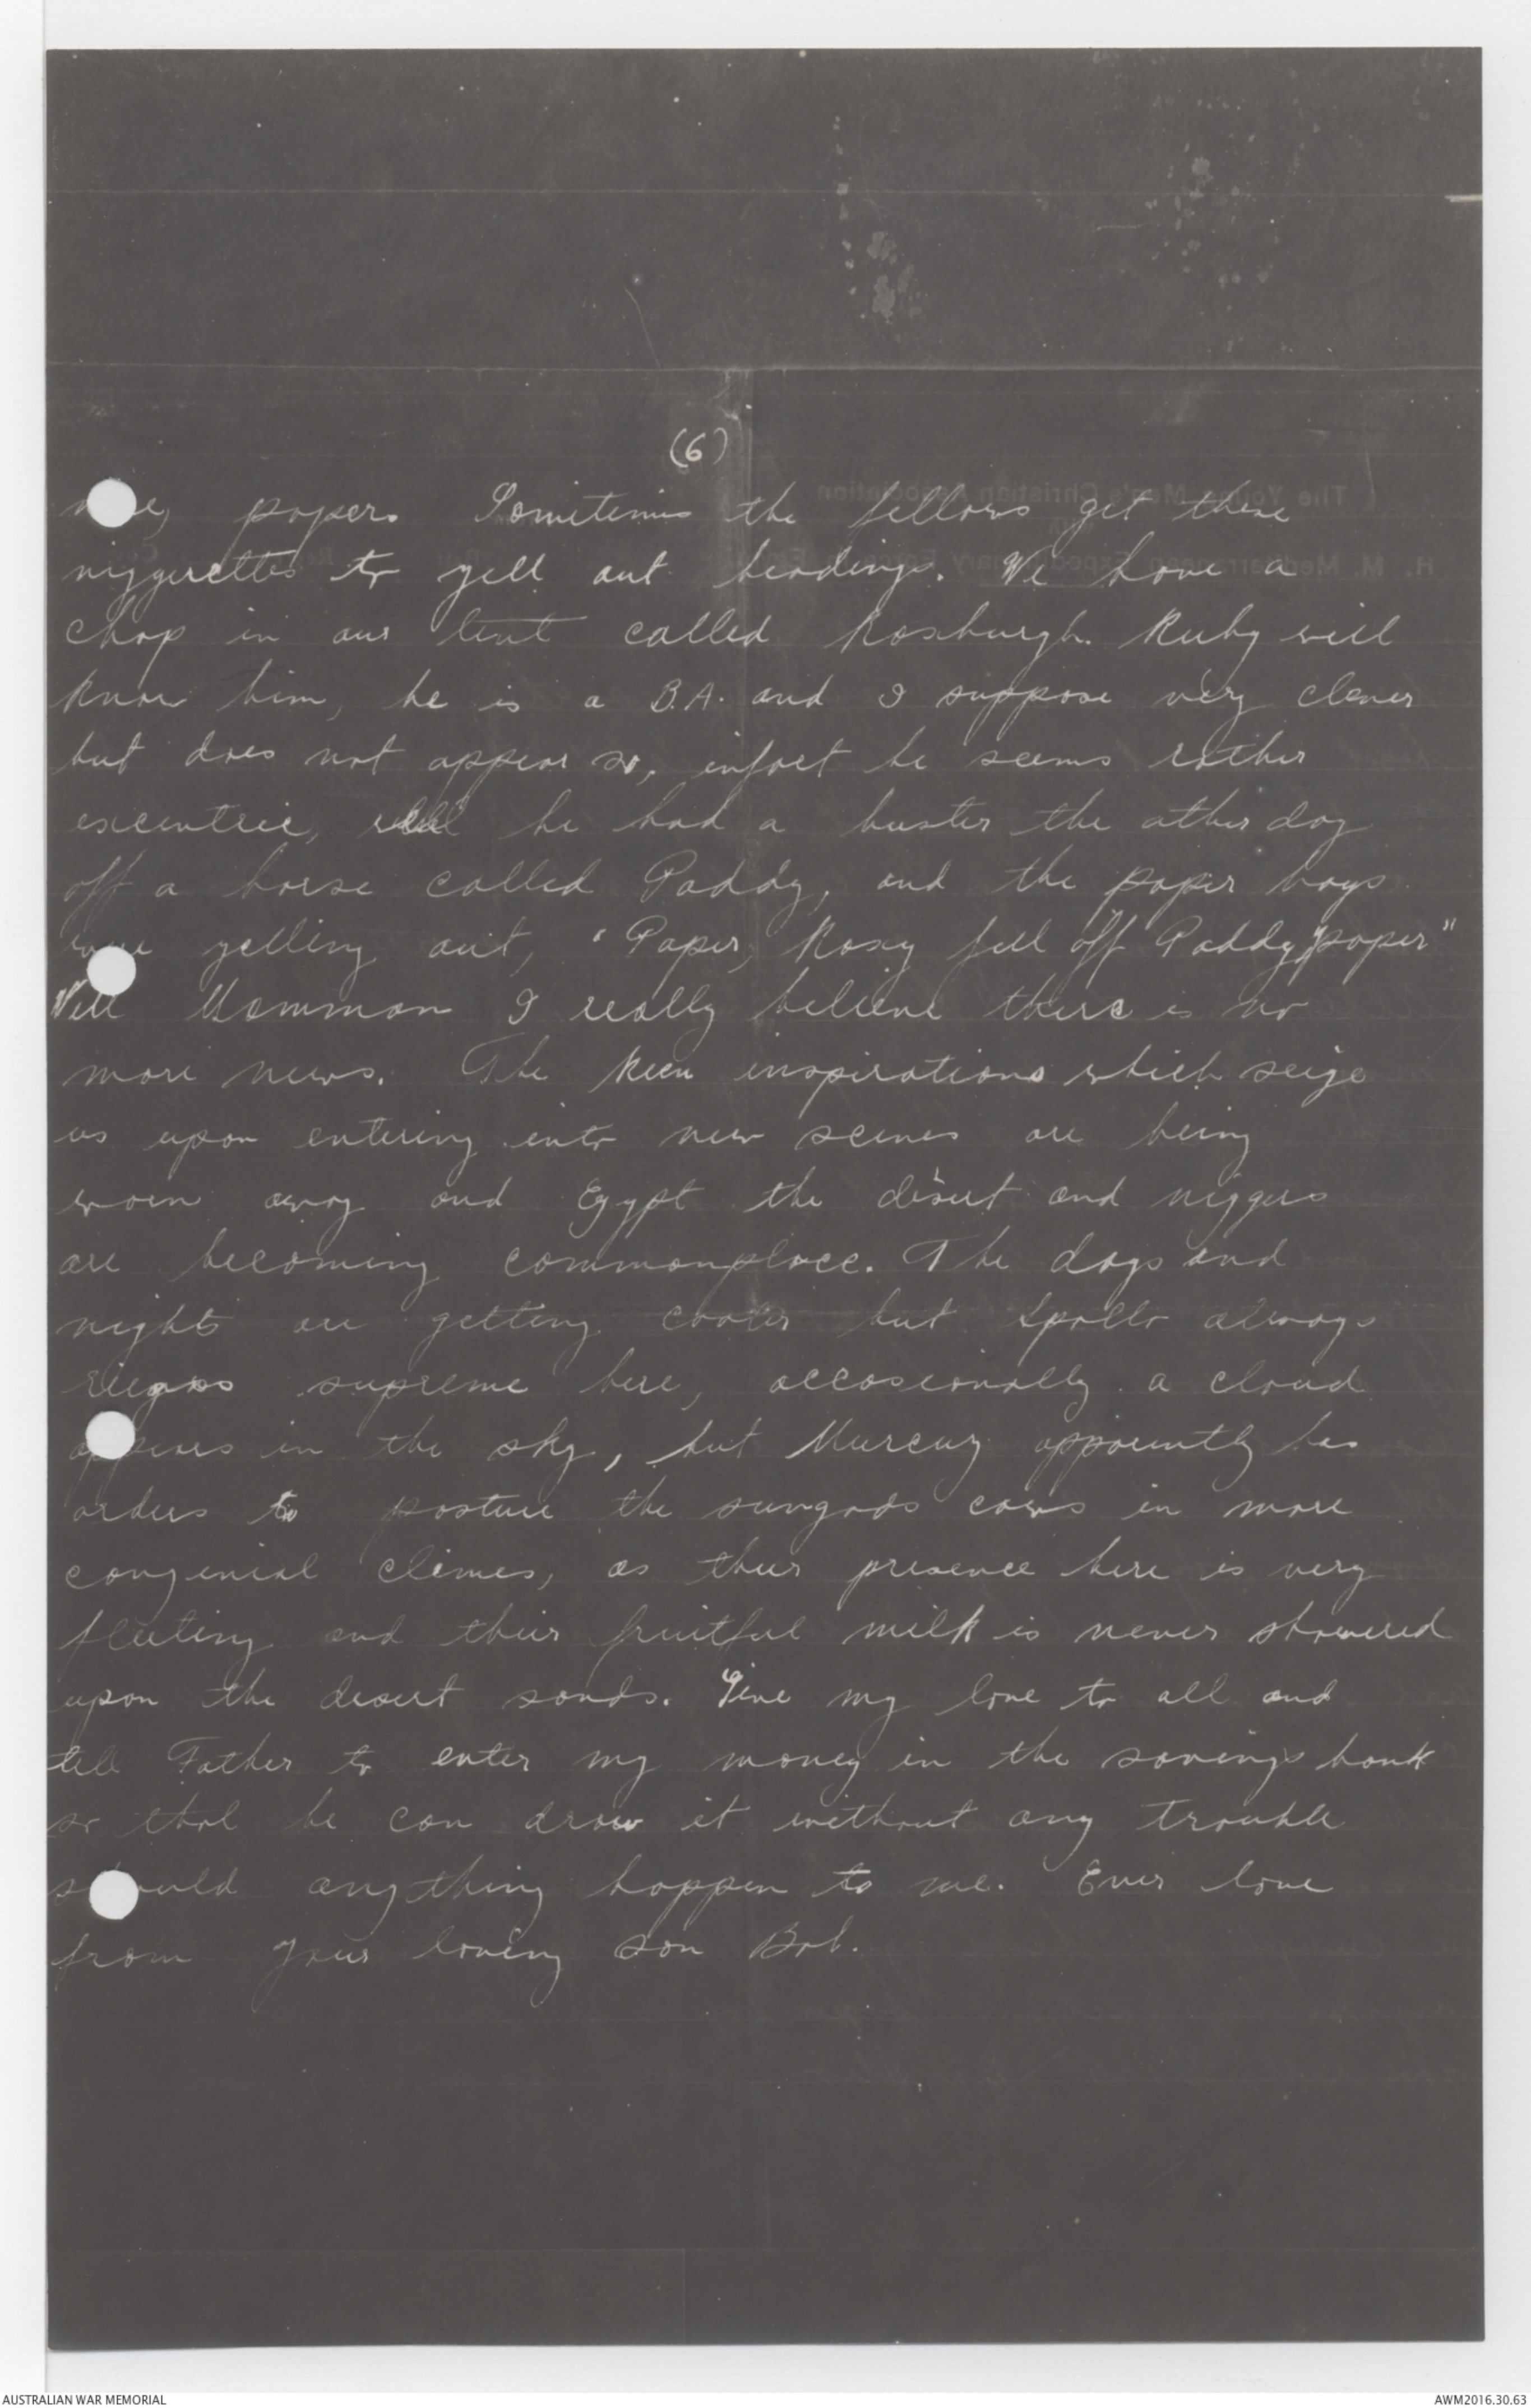 (6)
papers Sometimes the fellows get these
niggerettes to yell out headings. We have a
chap in our tent called Roxburgh. Ruby will
know him, he is a B.A. and I suppose very clever
but does not appear so, infact he seems rather
excentric, well he had a buster the other day
off a horse called Paddy, and the paper boys
were yelling out, "Paper, Roxy fell off Paddy, paper"
Well Mamman I really believe there is no
more news. The keen inspirations which seize
us upon entering into new scenes are being
worn away and Egypt the desert and niggers
are becoming commonplace. The days and
nights are getting cooler but Apollo always
reigns supreme here, occasionally a cloud
appears in the sky, but Mercury apparently has
orders to pasture the sungods cows in more
congenial climes, as their presence here is very
fleeting and their fruitful milk is never showered
upon the desert sands. Give my love to all and
tell Father to enter my money in the savings bank
so that he can draw it without any trouble
should anything happen to me. Ever love
from your loving son Bob.
The Young Men's Christian Association
H. M. Mediterranean Expeditionary Force
AUSTRALIAN WAR MEMORIAL
AWM2016.30.63